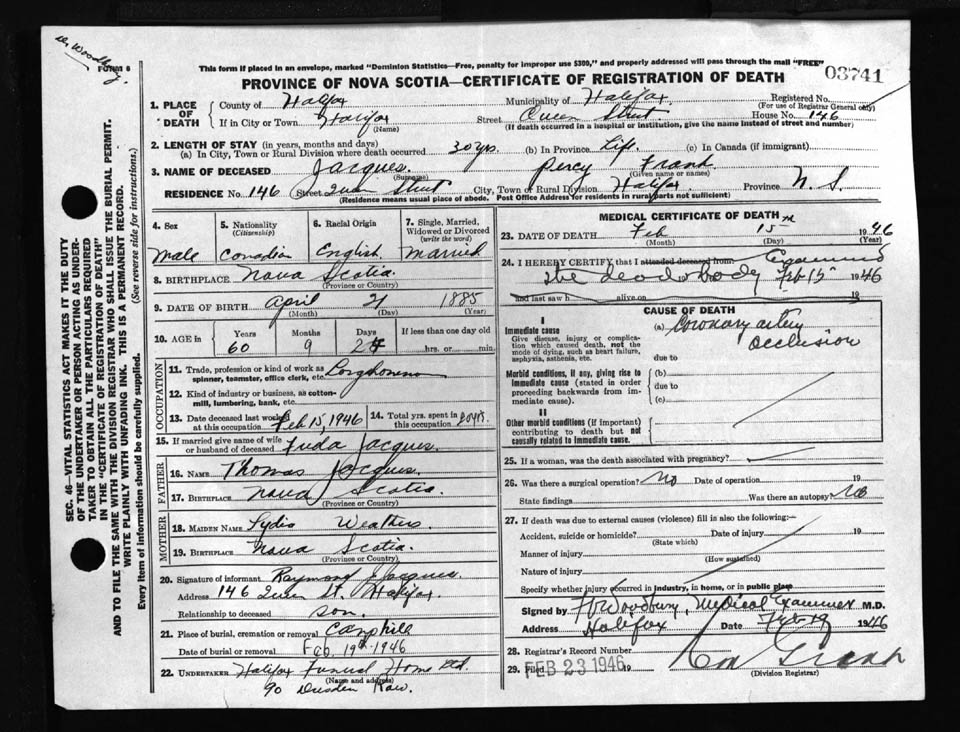 Dr Woodbury
FORM 6
This form if placed in an envelope, marked "Dominion Statistics—Free, penalty for improper use $300," and properly addressed will pass through the mail "FREE"
PROVINCE OF NOVA SCOTIA—CERTIFICATE OF REGISTRATION OF DEATH
03741
1. PLACE OF DEATH County of Halifax Municipality of Halifax Registered No.
(For use of Registrar General only)
If in City or Town Halifax (Name) Street Queen Street. House No. 146
(If death occurred in a hospital or institution, give the name instead of street and number)
2. LENGTH OF STAY (in years, months and days)
(a) In City, Town or Rural Division where death occurred 30 yrs. (b) In Province Life. (c) In Canada (if immigrant)
3. NAME OF DECEASED Jacques. (Surname) Percy Frank (Given name or names)
RESIDENCE No. 146 Street Queen Street City, Town or Rural Division Halifax. Province N. S.
(Residence means usual place of abode. Post Office Address for residents in rural parts not sufficient)
4. Sex Male
5. Nationality (Citizenship) Canadian
6. Racial Origin English.
7. Single, Married, Widowed or Divorced (write the word) Married
8. BIRTHPLACE Nova Scotia. (Province or Country)
9. DATE OF BIRTH April (Month) 21 (Day) 1885 (Year)
10. AGE in Years 60 Months 9 Days If less than one day old hrs. or min.
OCCUPATION
11. Trade, profession or kind of work as spinner, teamster, office clerk, etc. Longshoreman
12. Kind of industry or business, as cotton-mill, lumbering, bank, etc.
13. Date deceased last worked at this occupation Feb 15, 1946
14. Total yrs. spent in this occupation 20 yrs.
15. If married give name of wife or husband of deceased Jacques.
FATHER
16. NAME Thomas Jacques.
17. BIRTHPLACE Nova Scotia. (Province or Country)
MOTHER
18. MAIDEN NAME Lydia Weathers.
19. BIRTHPLACE Nova Scotia. (Province or Country)
20. Signature of informant Raymond Jacques.
Address 146 Queen St. Halifax.
Relationship to deceased son.
21. Place of burial, cremation or removal Camphill
Date of burial or removal Feb. 19th 1946
22. UNDERTAKER Halifax Funeral Home Ltd.
(Name and address)
90 Dresden Row.
MEDICAL CERTIFICATE OF DEATH
23. DATE OF DEATH Feb (Month) 15th (Day) 1946 (Year)
24. I HEREBY CERTIFY that I attended deceased from Examined
the dead body Feb 15 1946
and last saw h alive on 19
CAUSE OF DEATH
I
Immediate cause
Give disease, injury or complication which caused death, not the mode of dying, such as heart failure, asphyxia, asthenia, etc.
(a) Coronary artery occlusion
due to
Morbid conditions, if any, giving rise to immediate cause (stated in order proceeding backwards from immediate cause).
(b)
due to
(c)
II
Other morbid conditions (if important) contributing to death but not causally related to immediate cause.
25. If a woman, was the death associated with pregnancy?
26. Was there a surgical operation? No Date of operation 19
State findings Was there an autopsy? No
27. If death was due to external causes (violence) fill in also the following:—
Accident, suicide or homicide? (State which) Date of injury 19
Manner of injury (How sustained)
Nature of injury
Specify whether injury occurred in industry, in home, or in public place
Signed by F V Woodbury, Medical Examiner M.D.
Address Halifax Date Feb 19 1946
28. Registrar's Record Number
29. Filed FEB 23 1946
(Division Registrar)
SEC. 46—VITAL STATISTICS ACT MAKES IT THE DUTY
OF THE UNDERTAKER OR PERSON ACTING AS UNDERTAKER
TO OBTAIN ALL THE PARTICULARS REQUIRED
IN THE "CERTIFICATE OF REGISTRATION OF DEATH"
AND TO FILE THE SAME WITH THE DIVISION REGISTRAR WHO SHALL ISSUE THE BURIAL PERMIT.
WRITE PLAINLY WITH UNFADING INK. THIS IS A PERMANENT RECORD.
Every item of information should be carefully supplied. (See reverse side for instructions.)